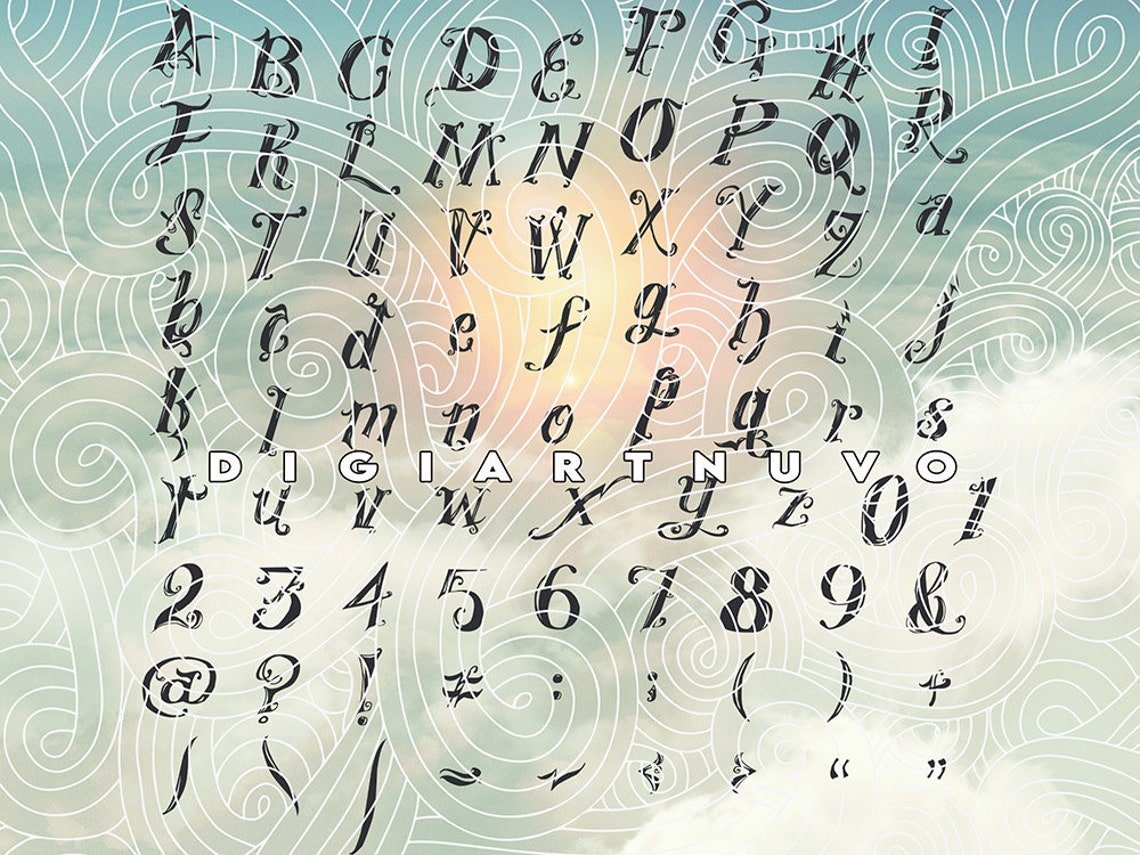 A B C D E F G H I
J K L M N O P Q R
S T U V W X Y Z a
b c d e f g h i j
k l m n o p q r s
DIGIARTNUVO
t u v w x y z 0 1
2 3 4 5 6 7 8 9 &
@ ? ! # : ; ( ) +
/ \ | - ~ < > “ ”